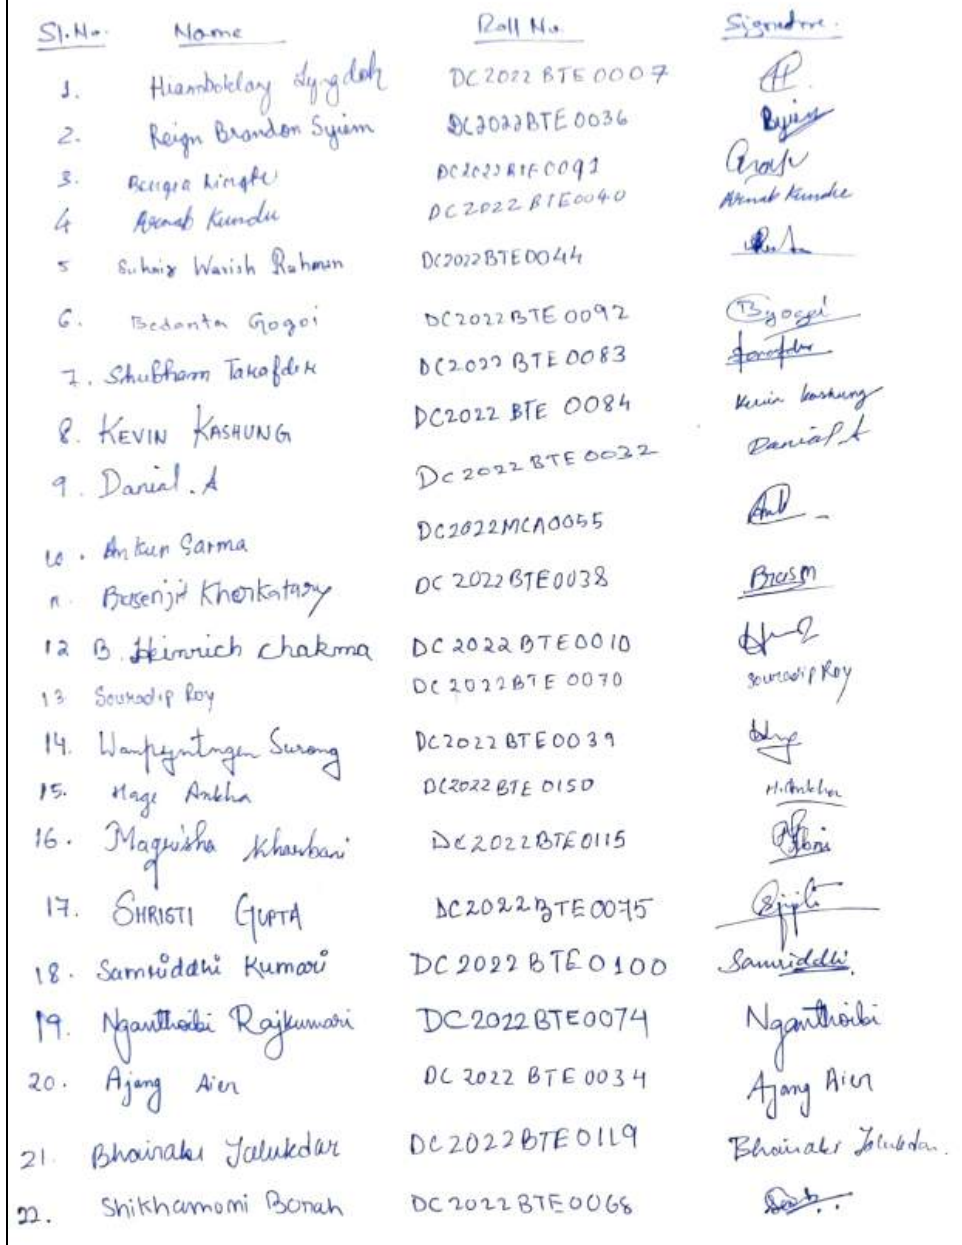 Sl.No. Name Roll No. Signature.
1. Hiamboklang Lyngdoh DC2022BTE0007
2. Reign Brandon Syiem DC2022BTE0036
3. DC2022BTE0091
4 Arnab Kundu DC2022BTE0040 Arnab Kundu
5 Suhaiz Warish Rahman DC2022BTE0044
6. Bedanta Gogoi DC2022BTE0092 BGogoi
7. Shubham Tarafder DC2022BTE0083
8. KEVIN KASHUNG DC2022 BTE 0084 Kevin kashung
9. Danial. A DC2022BTE0032 Danial A
10. Ankur Sarma DC2022MCA0055
11. Basenjit Khorkatary DC2022BTE0038
12 B. Heinrich chakma DC2022BTE0010
13 Souradip Roy DC2022BTE0070 Souradip Roy
14. Wanpyntngen Surong DC2022BTE0039
15. Hage Ankha DC2022BTE0150 H.Ankha
16. Maquisha Kharbani DC2022BTE0115
17. SHRISTI GUPTA DC2022BTE0075
18. Samriddhi Kumari DC2022BTE0100 Samriddhi
19. Nganthoibi Rajkumari DC2022BTE0074 Nganthoibi
20. Ajang Aier DC2022 BTE0034 Ajang Aier
21. Bhainabi Talukdar DC2022BTE0119 Talukdar.
22. Shikhamoni Borah DC2022BTE0068